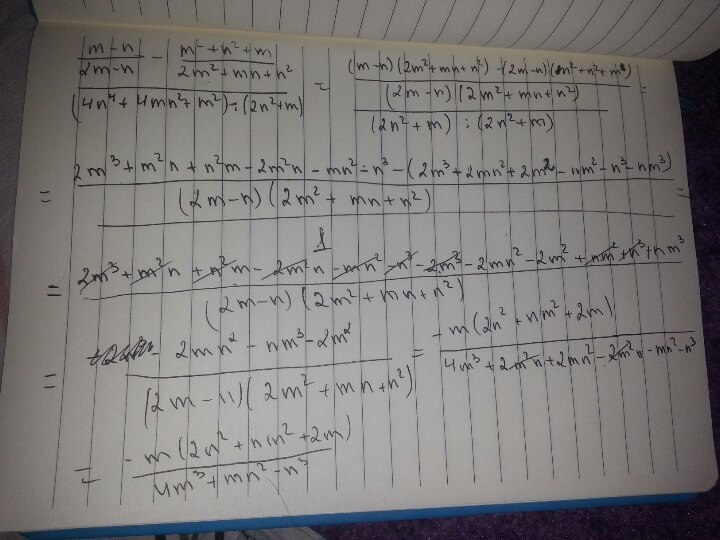 (m-n)/(2m-n) - (m²+n²+m)/(2m²+mn+n²) / (4n⁴+4mn²+m²) : (2n²+m) = (m-n)(2m²+mn+n²) - (2m-n)(m²+n²+m) / (2m-n)(2m²+mn+n²) / (2n²+m) : (2n²+m) =
= 2m³+m²n+n²m-2m²n-mn²-n³-(2m³+2mn²+2m²-nm²-n³-nm³) / (2m-n)(2m²+mn+n²) / 1 =
= 2m³+m²n+n²m-2m²n-mn²-n³-2m³-2mn²-2m²+nm²+n³+nm³ / (2m-n)(2m²+mn+n²)
= -2mn²-nm³-2m² / (2m-n)(2m²+mn+n²) = -m(2n²+nm²+2m) / 4m³+2m²n+2mn²-2m²n-mn²-n³
= -m(2n²+nm²+2m) / 4m³+mn²-n³